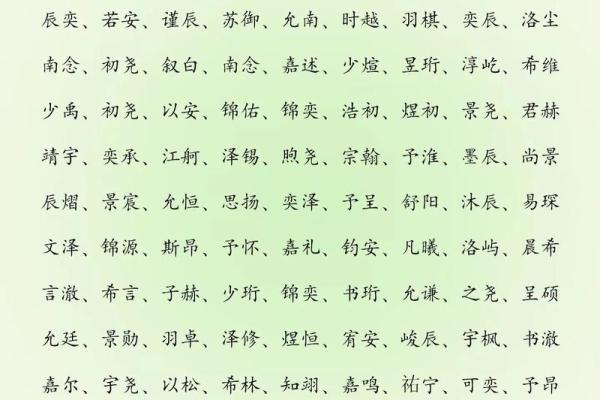 辰奕、若安、谨辰、苏御、允南、时越、羽棋、奕辰、洛尘
南念、初尧、叙白、南念、嘉述、少煊、昱珩、淳屹、希维
少禹、初尧、以安、锦佑、锦奕、浩初、煜初、景尧、君赫
靖宇、奕承、江舸、泽锡、煦尧、宗翰、予淮、墨辰、尚景
辰熠、景宸、允恒、思扬、奕泽、予呈、舒阳、沐辰、易琛
文泽、锦源、斯昂、予怀、嘉礼、钧安、凡曦、洛屿、晨希
言澈、希言、子赫、少珩、锦奕、书珩、允谦、之尧、呈硕
允廷、景勋、羽卓、泽修、煜恒、宥安、峻辰、宇枫、书澈
嘉尔、宇尧、以松、希林、知翊、嘉鸣、祐宁、可奕、予昂